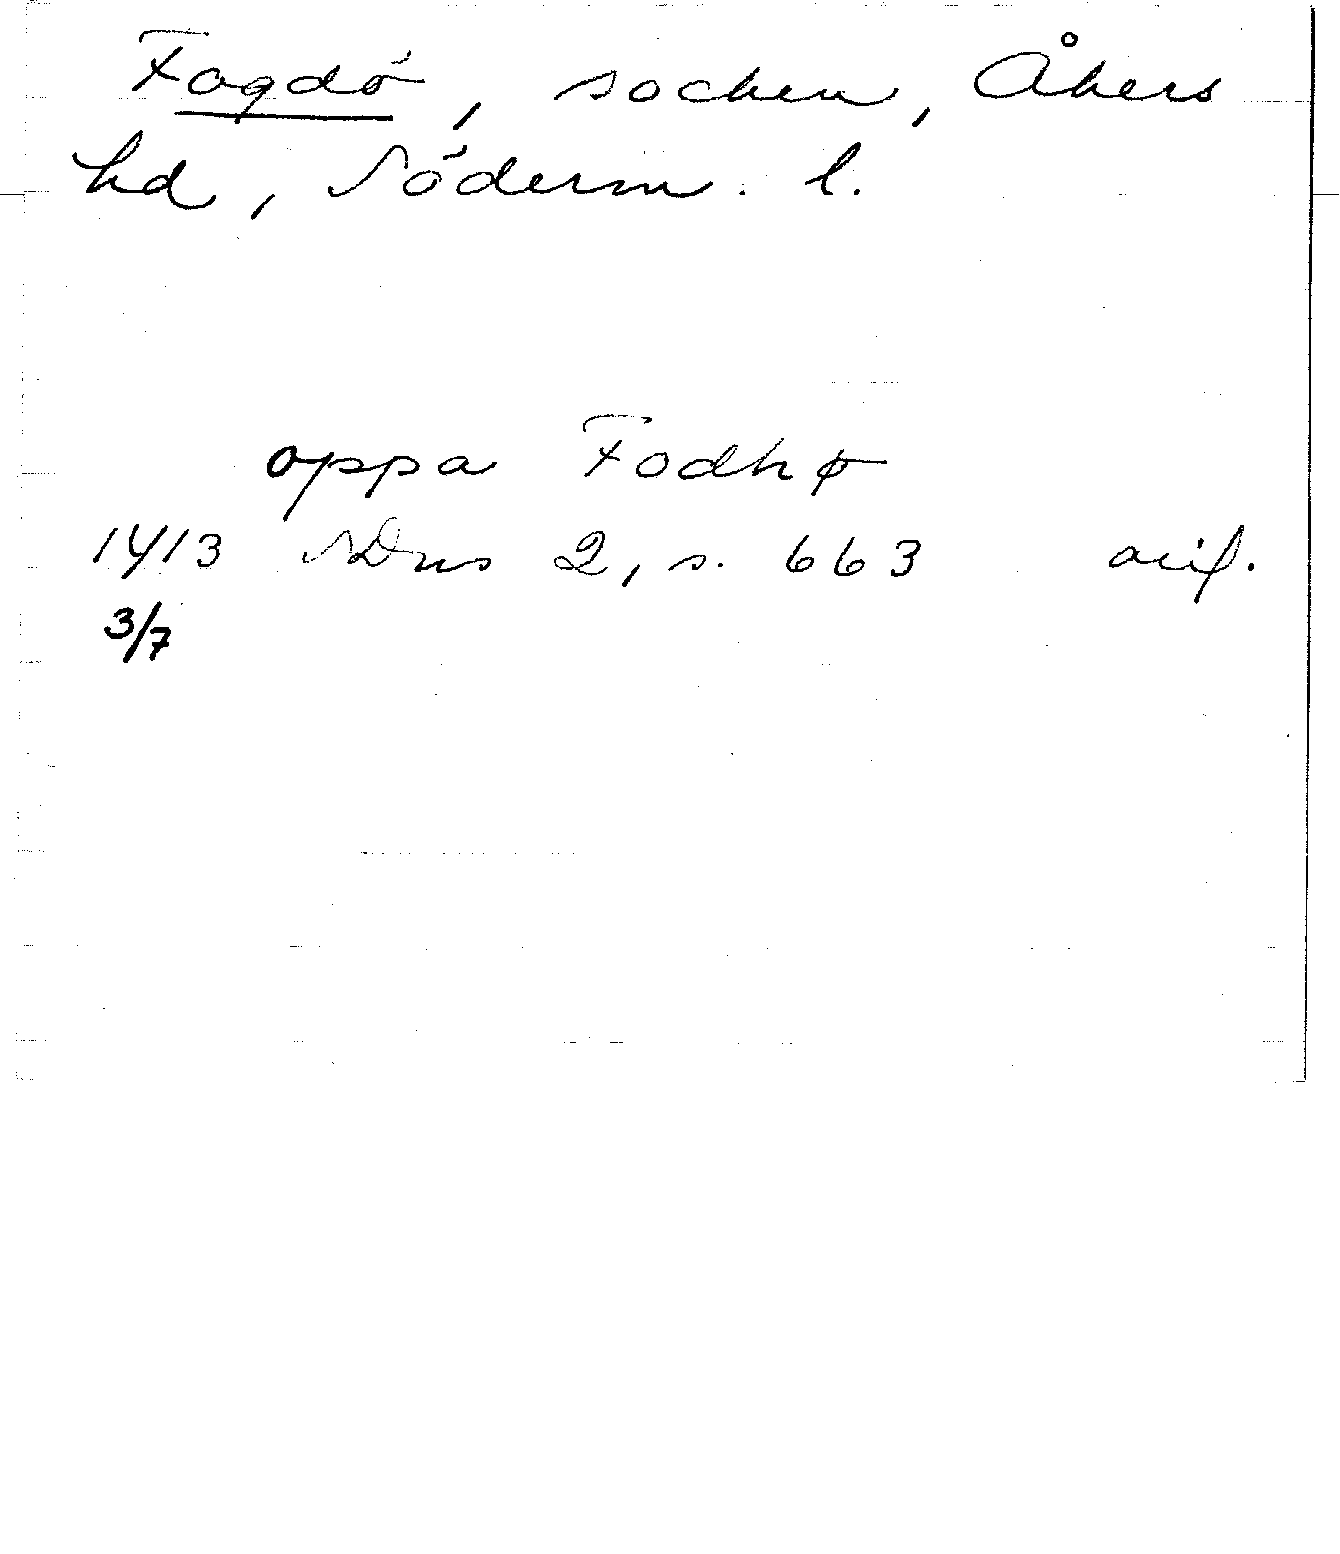 Fogdö, socken, Åkers
hd, Söderm. l.
oppa Fodhø
1413 SDns 2, s. 663 avs.
3/7